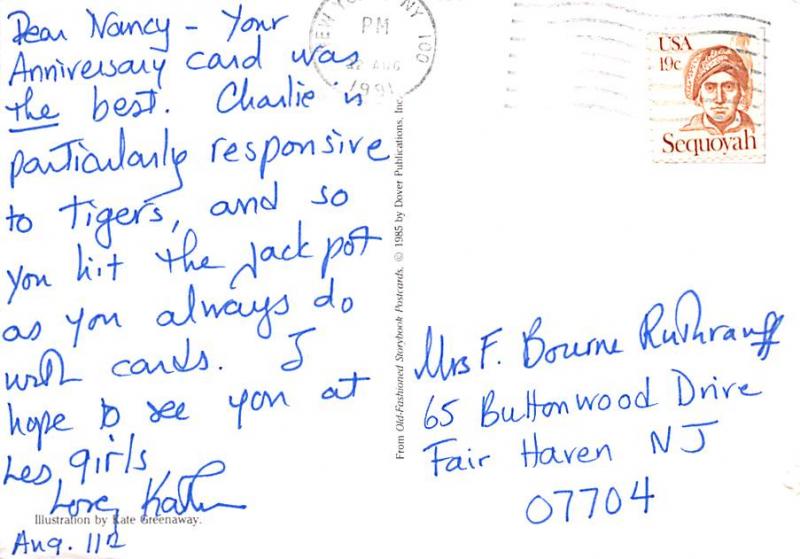 Dear Nancy – Your
Anniversary card was
the best. Charlie is
particularly responsive
to tigers, and so
you hit the jackpot
as you always do
with cards. I
hope to see you at
Les girls
Love,
Illustration by Kate Greenaway.
Aug. 11
From Old-Fashioned Storybook Postcards. © 1985 by Dover Publications, Inc.
NEW YORK NY 100
PM
AUG
1991
USA
19c
Sequoyah
Mrs F. Bourne Ruthrauff
65 Buttonwood Drive
Fair Haven NJ
07704